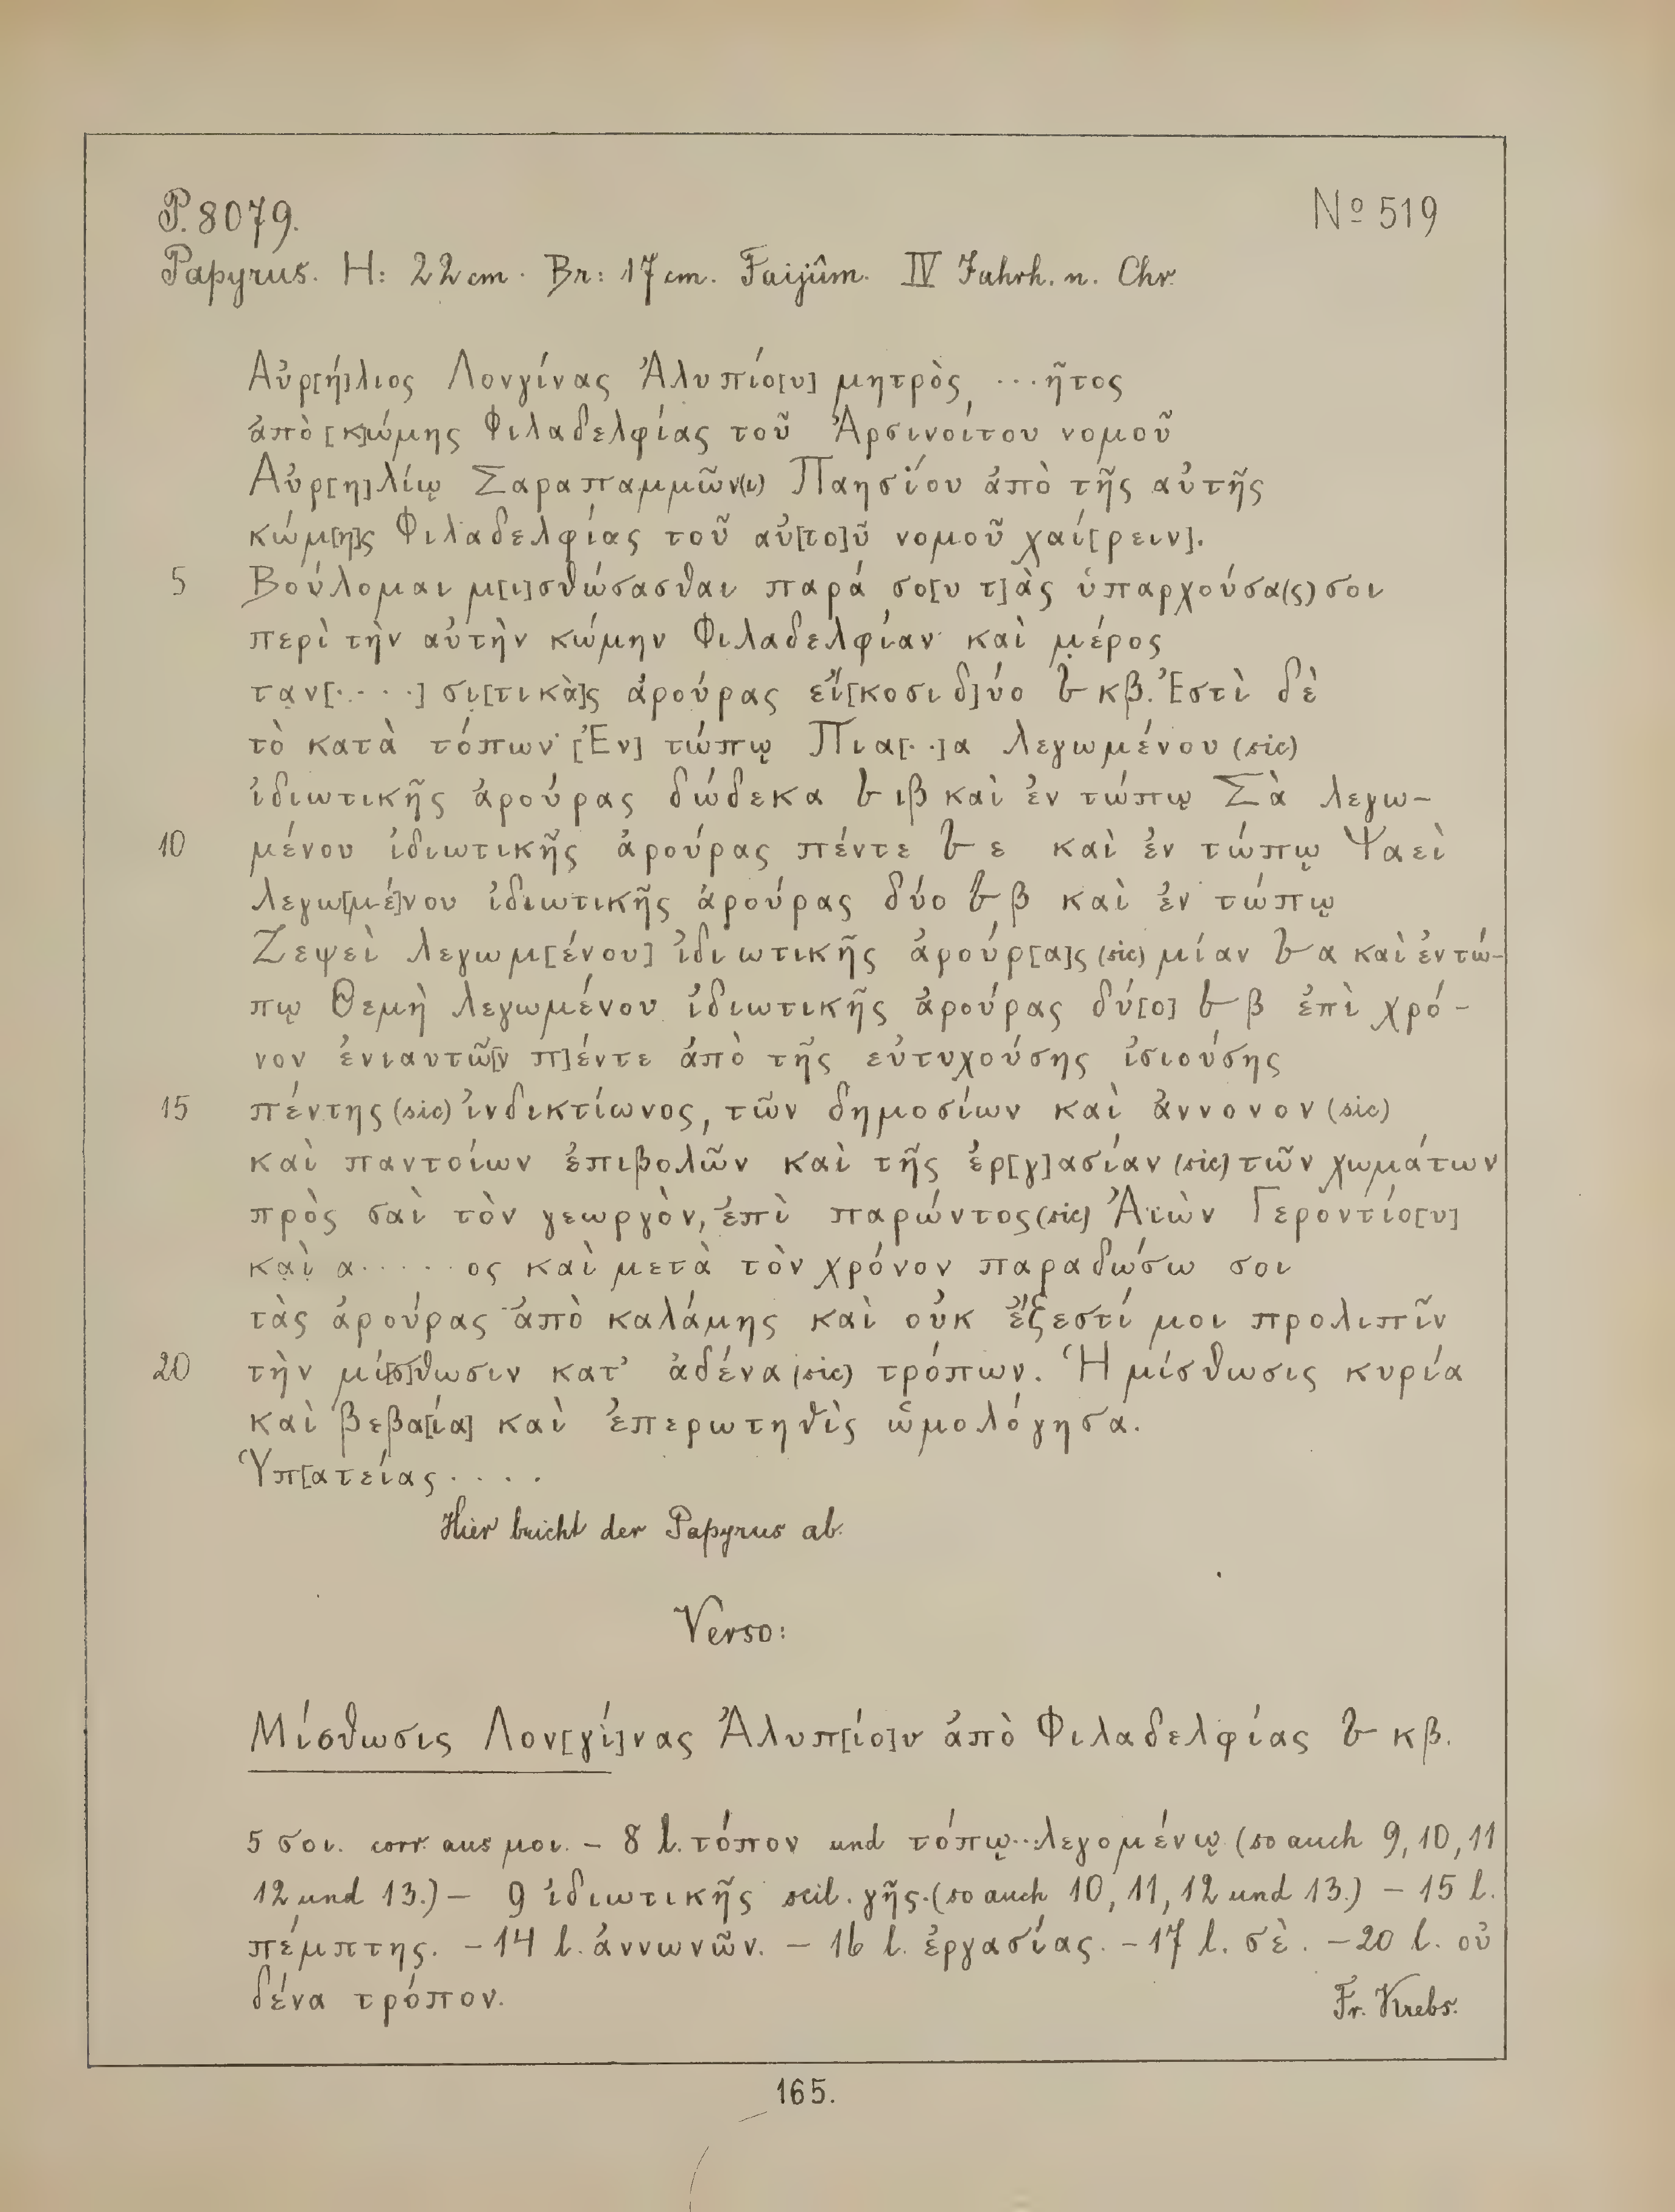 P. 8079.
No 519
Papyrus. H: 22 cm. Br: 17 cm. Faijûm. IV Jahrh. n. Chr.
Αὐρ[ή]λιος Λονγίνας Ἀλυπίο[υ] μητρὸς ...ῆτος
ἀπὸ [κ]ώμης Φιλαδελφίας τοῦ Ἀρσινοίτου νομοῦ
Αὐρ[η]λίῳ Σαραπαμμῶν(ι) Παησίου ἀπὸ τῆς αὐτῆς
κώμ[η]ς Φιλαδελφίας τοῦ αὐ[το]ῦ νομοῦ χαί[ρειν].
5 Βούλομαι μ[ι]σθώσασθαι παρά σο[υ τ]ὰς ὑπαρχούσα(ς) σοι
περὶ τὴν αὐτὴν κώμην Φιλαδελφίαν καὶ μέρος
ταν[....] σι[τικὰ]ς ἀρούρας εἴ[κοσι δ]ύο 𐅵 κβ. Ἐστὶ δὲ
τὸ κατὰ τόπων· [Ἐν] τώπῳ Πια[..]α λεγωμένου (sic)
ἰδιωτικῆς ἀρούρας δώδεκα 𐅵 ιβ καὶ ἐν τώπῳ Σὰ λεγω-
10 μένου ἰδιωτικῆς ἀρούρας πέντε 𐅵 ε καὶ ἐν τώπῳ Ψαεὶ
λεγω[μέ]νου ἰδιωτικῆς ἀρούρας δύο 𐅵 β καὶ ἐν τώπῳ
Ζεψεὶ λεγωμ[ένου] ἰδιωτικῆς ἀρούρ[α]ς (sic) μίαν 𐅵 α καὶ ἐν τώ-
πῳ Θεμὴ λεγωμένου ἰδιωτικῆς ἀρούρας δύ[ο] 𐅵 β ἐπὶ χρό-
νον ἐνιαυτῶ[ν π]έντε ἀπὸ τῆς εὐτυχούσης ἰσιούσης
15 πέντης (sic) ἰνδικτίωνος, τῶν δημοσίων καὶ ἀννονον (sic)
καὶ παντοίων ἐπιβολῶν καὶ τῆς ἐρ[γ]ασίαν (sic) τῶν χωμάτων
πρὸς σαὶ τὸν γεωργὸν, ἐπὶ παρώντος (sic) Ἀιὼν Γεροντίο[υ]
καὶ α.....ος καὶ μετὰ τὸν χρόνον παραδώσω σοι
τὰς ἀρούρας ἀπὸ καλάμης καὶ οὐκ ἔξεστί μοι προλιπῖν
20 τὴν μί[σ]θωσιν κατ' ἀδένα (sic) τρόπων. Ἡ μίσθωσις κυρία
καὶ βεβα[ία] καὶ ἐπερωτηθὶς ὡμολόγησα.
Ὑπ[ατείας....
Hier bricht der Papyrus ab.
Verso:
Μίσθωσις Λον[γί]νας Ἀλυπ[ίο]υ ἀπὸ Φιλαδελφίας 𐅵 κβ.
5 σοι. corr. aus μοι. – 8 l. τόπον und τόπῳ...λεγομένῳ (so auch 9, 10, 11
12 und 13.) – 9 ἰδιωτικῆς scil. γῆς. (so auch 10, 11, 12 und 13.) – 15 l.
πέμπτης. – 14 l. ἀννωνῶν. – 16 l. ἐργασίας. – 17 l. σὲ. – 20 l. οὐ
δένα τρόπον.
Fr. Krebs.
165.